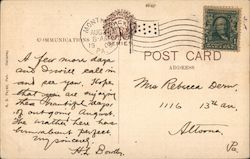 COMMUNICATIONS
POST CARD
ADDRESS
A few more days
and I will call in
and see you. Hope
that you are enjoying
these beautiful days
of out going August.
The weather has
been about perfect.
H. L. Bowlby.
Mrs Rebecca Dern,
1116 13th av.
Altoona,
Pa.